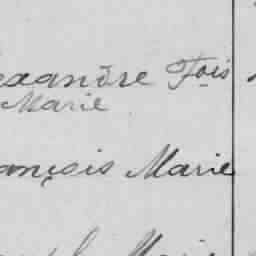 exandre Fois
Marie
ançois Marie